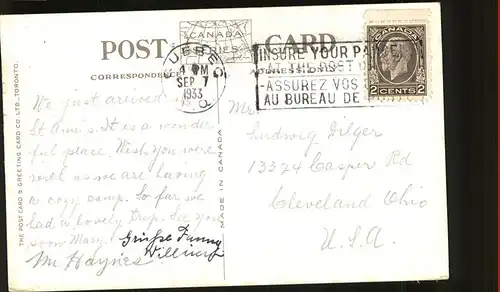 POST CARD
CANADA
CORRESPONDENCE
ADDRESS
QUEBEC
4 PM
SEP 7
1933
P.Q.
INSURE YOUR PARCEL
AT THE POST
ASSUREZ VOS
AU BUREAU DE
CANADA
2 CENTS 2
THE POST CARD & GREETING CARD CO. LTD., TORONTO.
MADE IN CANADA
We just arrived
St Ann's. It is a wonder-
ful place. Wish you were
with us as we are having
a cozy camp. So far we
had a lovely trip. See you
soon Mary.
Grüsse Fanny
Mr Haynes
Mr.
Ludwig Dilger
13324 Casper Rd
Cleveland Ohio
U.S.A.